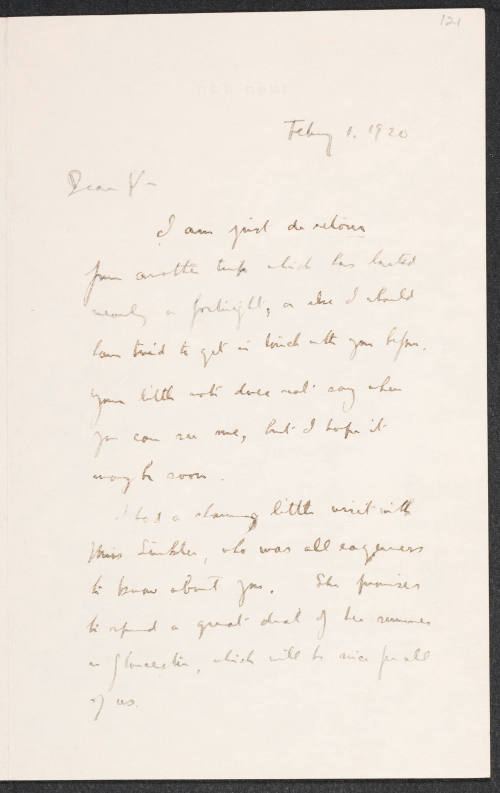 121
Feby 1. 1920
Dear V—
I am just de retour
from another trip which has lasted
nearly a fortnight, or else I should
have tried to get in touch with you before.
Your little note does not say when
you can see me, but I hope it
may be soon.
I had a charming little visit with
Miss Sinkler, who was all eagerness
to know about you. She promises
to spend a great deal of the summer
in Gloucester, which will be nice for all
of us.